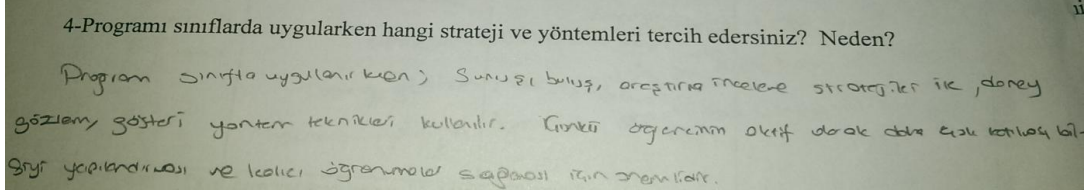 4-Programı sınıflarda uygularken hangi strateji ve yöntemleri tercih edersiniz? Neden?
Program sınıfta uygulanırken; Sunuş, buluş, araştırma inceleme stratejileri ile, deney
gözlem, gösteri yöntem teknikleri kullanılır. Çünkü öğrencinin aktif olarak daha katılması bil-
giyi yapılandırması ve kalıcı öğrenmeler sağlaması için önemlidir.